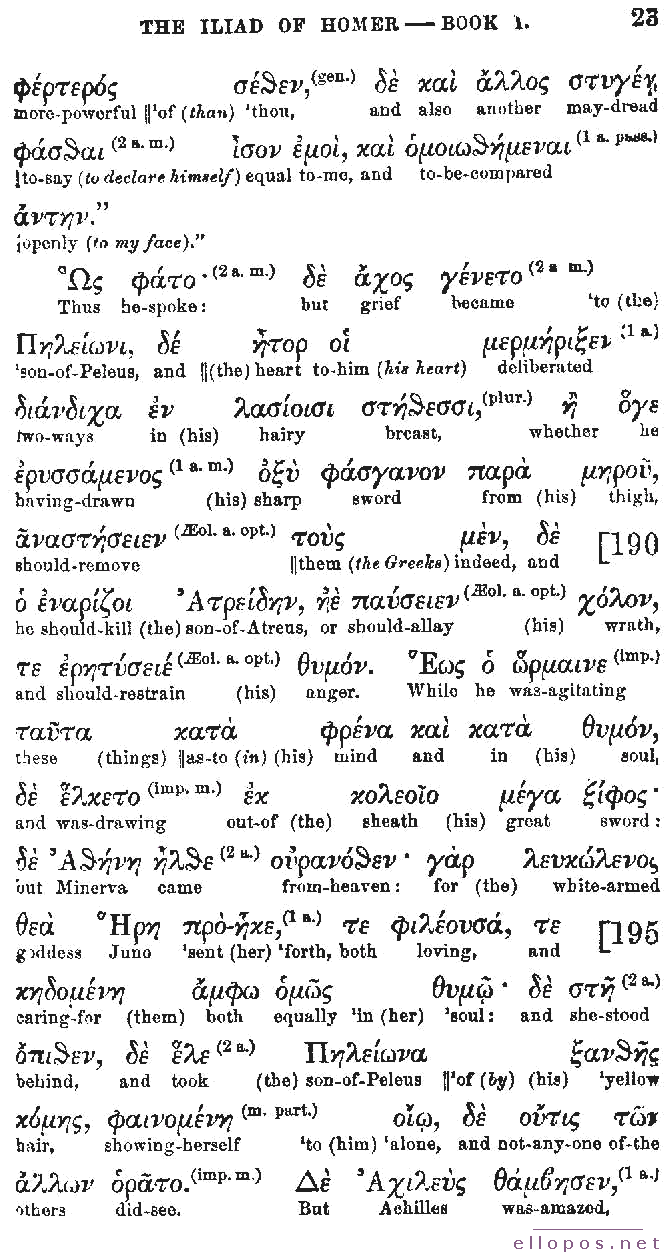 THE ILIAD OF HOMER — BOOK 1. 23
φέρτερός σέθεν,(gen.) δὲ καὶ ἄλλος στυγέῃ
more-powerful ‖'of (than) 'thou, and also another may-dread
φάσθαι (2 a. m.) ἶσον ἐμοὶ, καὶ ὁμοιωθήμεναι (1 a. pass.)
‖to-say (to declare himself) equal to-me, and to-be-compared
ἄντην.”
openly (to my face).”
Ὣς φάτο· (2 a. m.) δὲ ἄχος γένετο (2 a m.)
Thus he-spoke: but grief became 'to (the)
Πηλείωνι, δέ ἦτορ οἱ μερμήριξεν (1 a.)
'son-of-Peleus, and ‖(the) heart to-him (his heart) deliberated
διάνδιχα ἐν λασίοισι στήθεσσι,(plur.) ἢ ὅγε
two-ways in (his) hairy breast, whether he
ἐρυσσάμενος (1 a. m.) ὀξὺ φάσγανον παρὰ μηροῦ,
having-drawn (his) sharp sword from (his) thigh,
ἀναστήσειεν (Æol. a. opt.) τοὺς μὲν, δὲ [190
should-remove ‖them (the Greeks) indeed, and
ὁ ἐναρίζοι Ἀτρείδην, ἠὲ παύσειεν (Æol. a. opt.) χόλον,
he should-kill (the) son-of-Atreus, or should-allay (his) wrath,
τε ἐρητύσειέ (Æol. a. opt.) θυμόν. Ἕως ὁ ὥρμαινε (imp.)
and should-restrain (his) anger. While he was-agitating
ταῦτα κατὰ φρένα καὶ κατὰ θυμόν,
these (things) ‖as-to (in) (his) mind and in (his) soul,
δὲ ἕλκετο (imp. m.) ἐκ κολεοῖο μέγα ξίφος·
and was-drawing out-of (the) sheath (his) great sword:
δὲ Ἀθήνη ἦλθε (2 a.) οὐρανόθεν· γὰρ λευκώλενος
but Minerva came from-heaven: for (the) white-armed
θεὰ Ἥρη πρὸ-ἧκε,(1 a.) τε φιλέουσά, τε [195
goddess Juno 'sent (her) 'forth, both loving, and
κηδομένη ἄμφω ὁμῶς θυμῷ· δὲ στῆ (2 a.)
caring-for (them) both equally 'in (her) 'soul: and she-stood
ὄπιθεν, δὲ ἕλε (2 a.) Πηλείωνα ξανθῆς
behind, and took (the) son-of-Peleus ‖'of (by) (his) 'yellow
κόμης, φαινομένη (m. part.) οἴῳ, δὲ οὔτις τῶν
hair, showing-herself 'to (him) 'alone, and not-any-one of-the
ἄλλων ὁρᾶτο.(imp. m.) Δὲ Ἀχιλεὺς θάμβησεν,(1 a.)
others did-see. But Achilles was-amazed,
ellopos.net